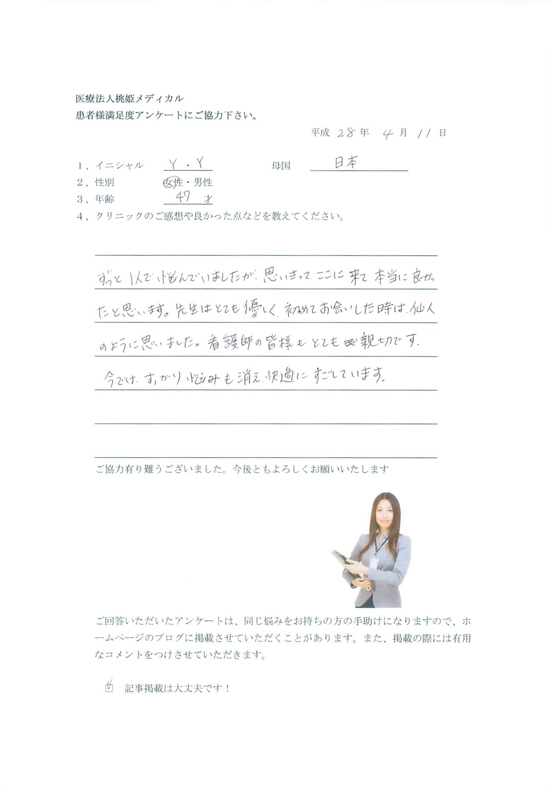 医療法人桃姫メディカル
患者様満足度アンケートにご協力下さい。
平成 28 年 4 月 11 日
1、イニシャル Y・Y 母国 日本
2、性別 女性・男性
3、年齢 47 才
4、クリニックのご感想や良かった点などを教えてください。
ずっと1人で悩んでいましたが、思いきって ここに来て 本当に良かっ
たと思います。先生はとても優しく 初めてお会いした時は、仙人
のように思いました。看護師の皆様も とても 親切です。
今では、すっかり 悩みも消え、快適に すごしています。
ご協力有り難うございました。今後ともよろしくお願いいたします
ご回答いただいたアンケートは、同じ悩みをお持ちの方の手助けになりますので、ホ
ームページのブログに掲載させていただくことがあります。また、掲載の際には有用
なコメントをつけさせていただきます。
☑ 記事掲載は大丈夫です！